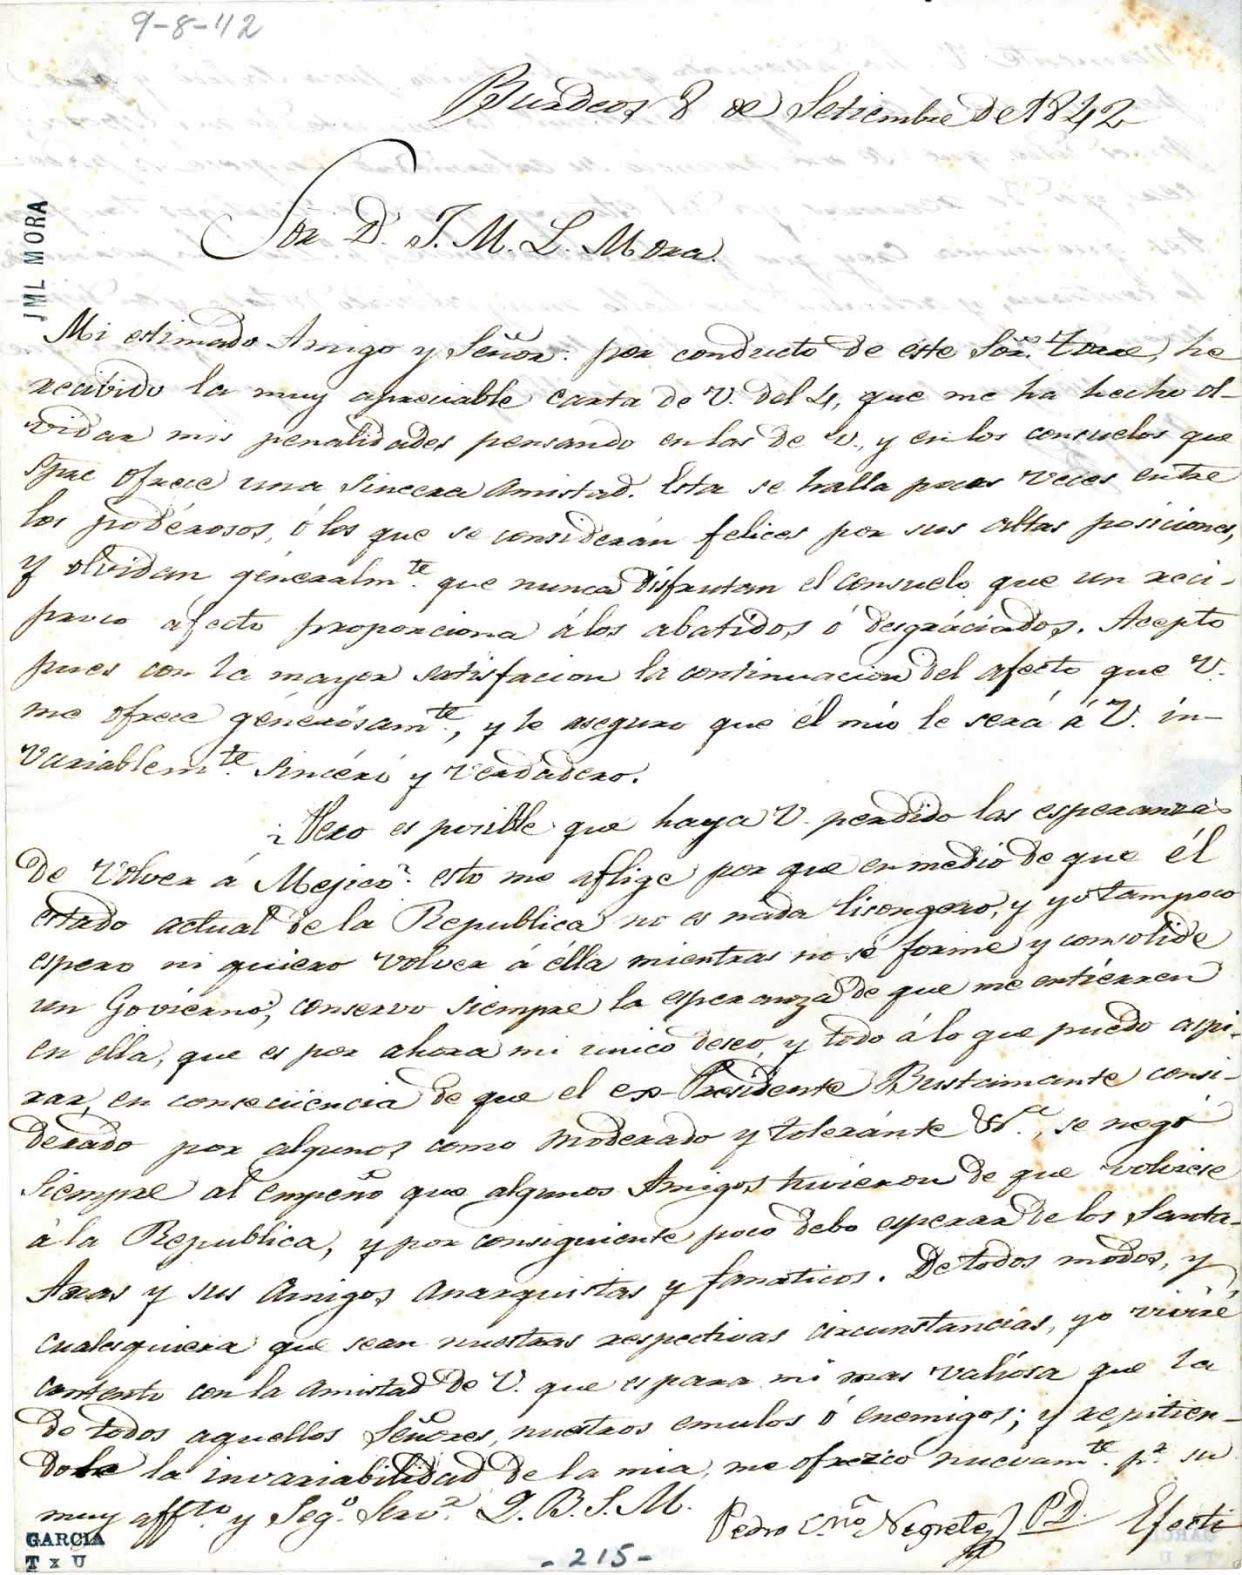 9-8-42
Burdeos 8 de Setiembre de 1842
JML MORA
Sor D. J. M. L. Mora.
Mi estimado Amigo y Señor: por conducto de este Sor. Torre, he
recibido la muy apreciable carta de V. del 4, que me ha hecho ol-
vidar mis penalidades pensando en las de V., y en los consuelos que
spre ofrece una sincera amistad. Esta se halla pocas veces entre
los podérosos, ó los que se considerán felices por sus altas posiciones,
y olvidan géneralmte. que nunca disfrutan el consuelo que un reci-
proco afecto proporciona á los abatidos ó desgráciados. Acepto
pues con la mayor satisfacion la continuacion del afecto que V.
me ofrece génerosamte., y le aseguro que él mio le será á V. in-
variablemte. sincéro y verdadero.
¿Pero es posible que haya V. perdido las esperanzas
de volver á Mejico? esto me aflige por que en medio de que él
estado actual de la Republica no es nada lisongero, y yo tampoco
espero ni quiero volver á élla mientras no se forme y consolide
un Goviérno, conservo siempre la esperanza de que me entiérren
en ella, que es por ahora mi unico deseo, y todo á lo que puedo aspi-
rar, en consecüencia de que el ex-Presidente Bustamante consi-
derado por algunos como moderado y toleránte &a., se negó
siempre al empeño que algunos Amigos tuviéron de que volviese
á la Republica, y por consiguiente poco debo esperar de los Santa-
Anas y sus amigos anarquistas y fanaticos. De todos modos, y
cualesquiera que sean nuestras respectivas circunstancias, yo viviré
contento con la amistad de V. que es para mi mas valiosa que la
de todos aquellos Señores, nuestros emulos ó enemigos; y repitien-
dole la invariabilidad de la mia, me ofrezco nuevamte. pa. su
muy affto. y Sego. Servr. Q. B. S. M.
Pedro Cno. Negrete P.D. Efecti
GARCIA
T x U
- 215 -